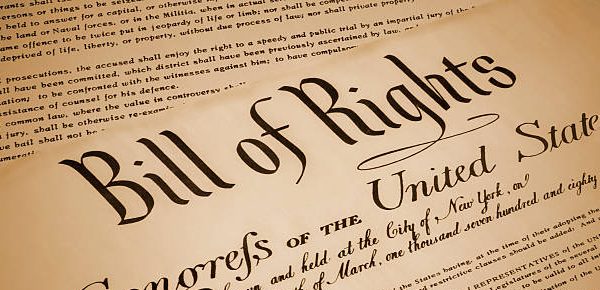 rrants shall
persons or
be held to answer for a capital, or otherwise
the Land or Naval forces, or in the Militia, when in actual service
same offence to be twice put in jeopardy of life or limb; nor shall be compelled
deprived of life, liberty, or property, without due process of law; nor shall private property
prosecutions, the accused shall enjoy the right to a speedy and public trial by an impartial jury of the
shall have been committed, which district shall have been previously ascertained by law, and
to be confronted with the witnesses against him; to have compulsory
assistance of counsel for his defence.
common law, where the value in controversy shall
jury, shall be otherwise re-exam
bail shall not be
Bill of Rights
Congreſs OF THE United State
and held at the City of New York, on
of March, one thousand seven hundred and eighty
the States having, at the time of their adopting the
restrictive clauses should be added: And
REPRESENTATIVES of the UN
Legislatures of the several
to be valid to all in